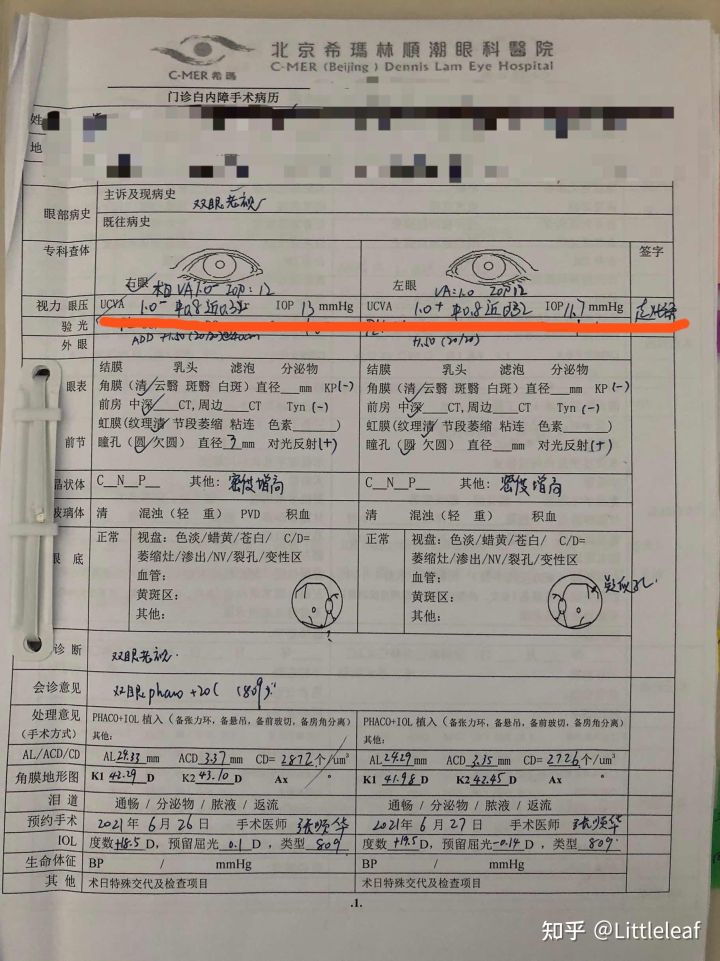 C-MER 希瑪
北京希瑪林順潮眼科醫院
C-MER (Beijing) Dennis Lam Eye Hospital
门诊白内障手术病历
姓
地
眼部病史 主诉及现病史 双眼老视
既往病史
专科查体 右眼 左眼 签字
VA 1.0⁻ IOP: 12 VA: 1.0 IOP 12
视力 眼压 UCVA 1.0⁻ IOP 13 mmHg UCVA 1.0⁺ IOP 11.7 mmHg
验光
外眼 ADD +1.50 (20/20) +1.50 (20/20)
眼表 结膜 乳头 滤泡 分泌物 结膜 乳头 滤泡 分泌物
角膜（清 云翳 斑翳 白斑）直径___mm KP(-) 角膜（清 云翳 斑翳 白斑）直径___mm KP(-)
前房 中深____CT,周边____CT Tyn (-) 前房 中深____CT,周边____CT Tyn (-)
虹膜(纹理清 节段萎缩 粘连 色素______) 虹膜(纹理清 节段萎缩 粘连 色素______)
前节 瞳孔（圆 欠圆） 直径 3 mm 对光反射(+) 瞳孔（圆 欠圆） 直径___mm 对光反射(+)
晶状体 C__N__P__ 其他: 密度增高 C__N__P__ 其他: 密度增高
玻璃体 清 混浊（轻 重） PVD 积血 清 混浊（轻 重） 积血
眼底 正常 视盘：色淡/蜡黄/苍白/ C/D= 正常 视盘：色淡/蜡黄/苍白/ C/D=
萎缩灶/渗出/NV/裂孔/变性区 萎缩灶/渗出/NV/裂孔/变性区
血管： 血管： 疑似孔.
黄斑区： 黄斑区：
其他： ? 其他：
诊断 双眼老视.
会诊意见 双眼phaco + (809).
处理意见 PHACO+IOL 植入（备张力环，备悬吊，备前玻切，备房角分离） PHACO+IOL 植入（备张力环，备悬吊，备前玻切，备房角分离）
(手术方式) 其他: 其他:
AL/ACD/CD AL 24.33 mm ACD 3.37 mm CD= 2872 个/um³ AL 24.29 mm ACD 3.35 mm CD= 2726 个/um³
角膜地形图 K1 43.29 D K2 43.10 D Ax ° K1 41.98 D K2 42.45 D Ax °
泪道 通畅 / 分泌物 / 脓液 / 返流 通畅 / 分泌物 / 脓液 / 返流
预约手术 2021年 6月 26日 手术医师 张顺华 2021年 6月 27日 手术医师 张顺华
IOL 度数 +18.5 D，预留屈光 0.1 D，类型 809 度数 +19.5 D，预留屈光 -0.14 D，类型 809.
生命体征 BP / mmHg BP / mmHg
其他 术日特殊交代及检查项目 术日特殊交代及检查项目
.1.
知乎 @Littleleaf